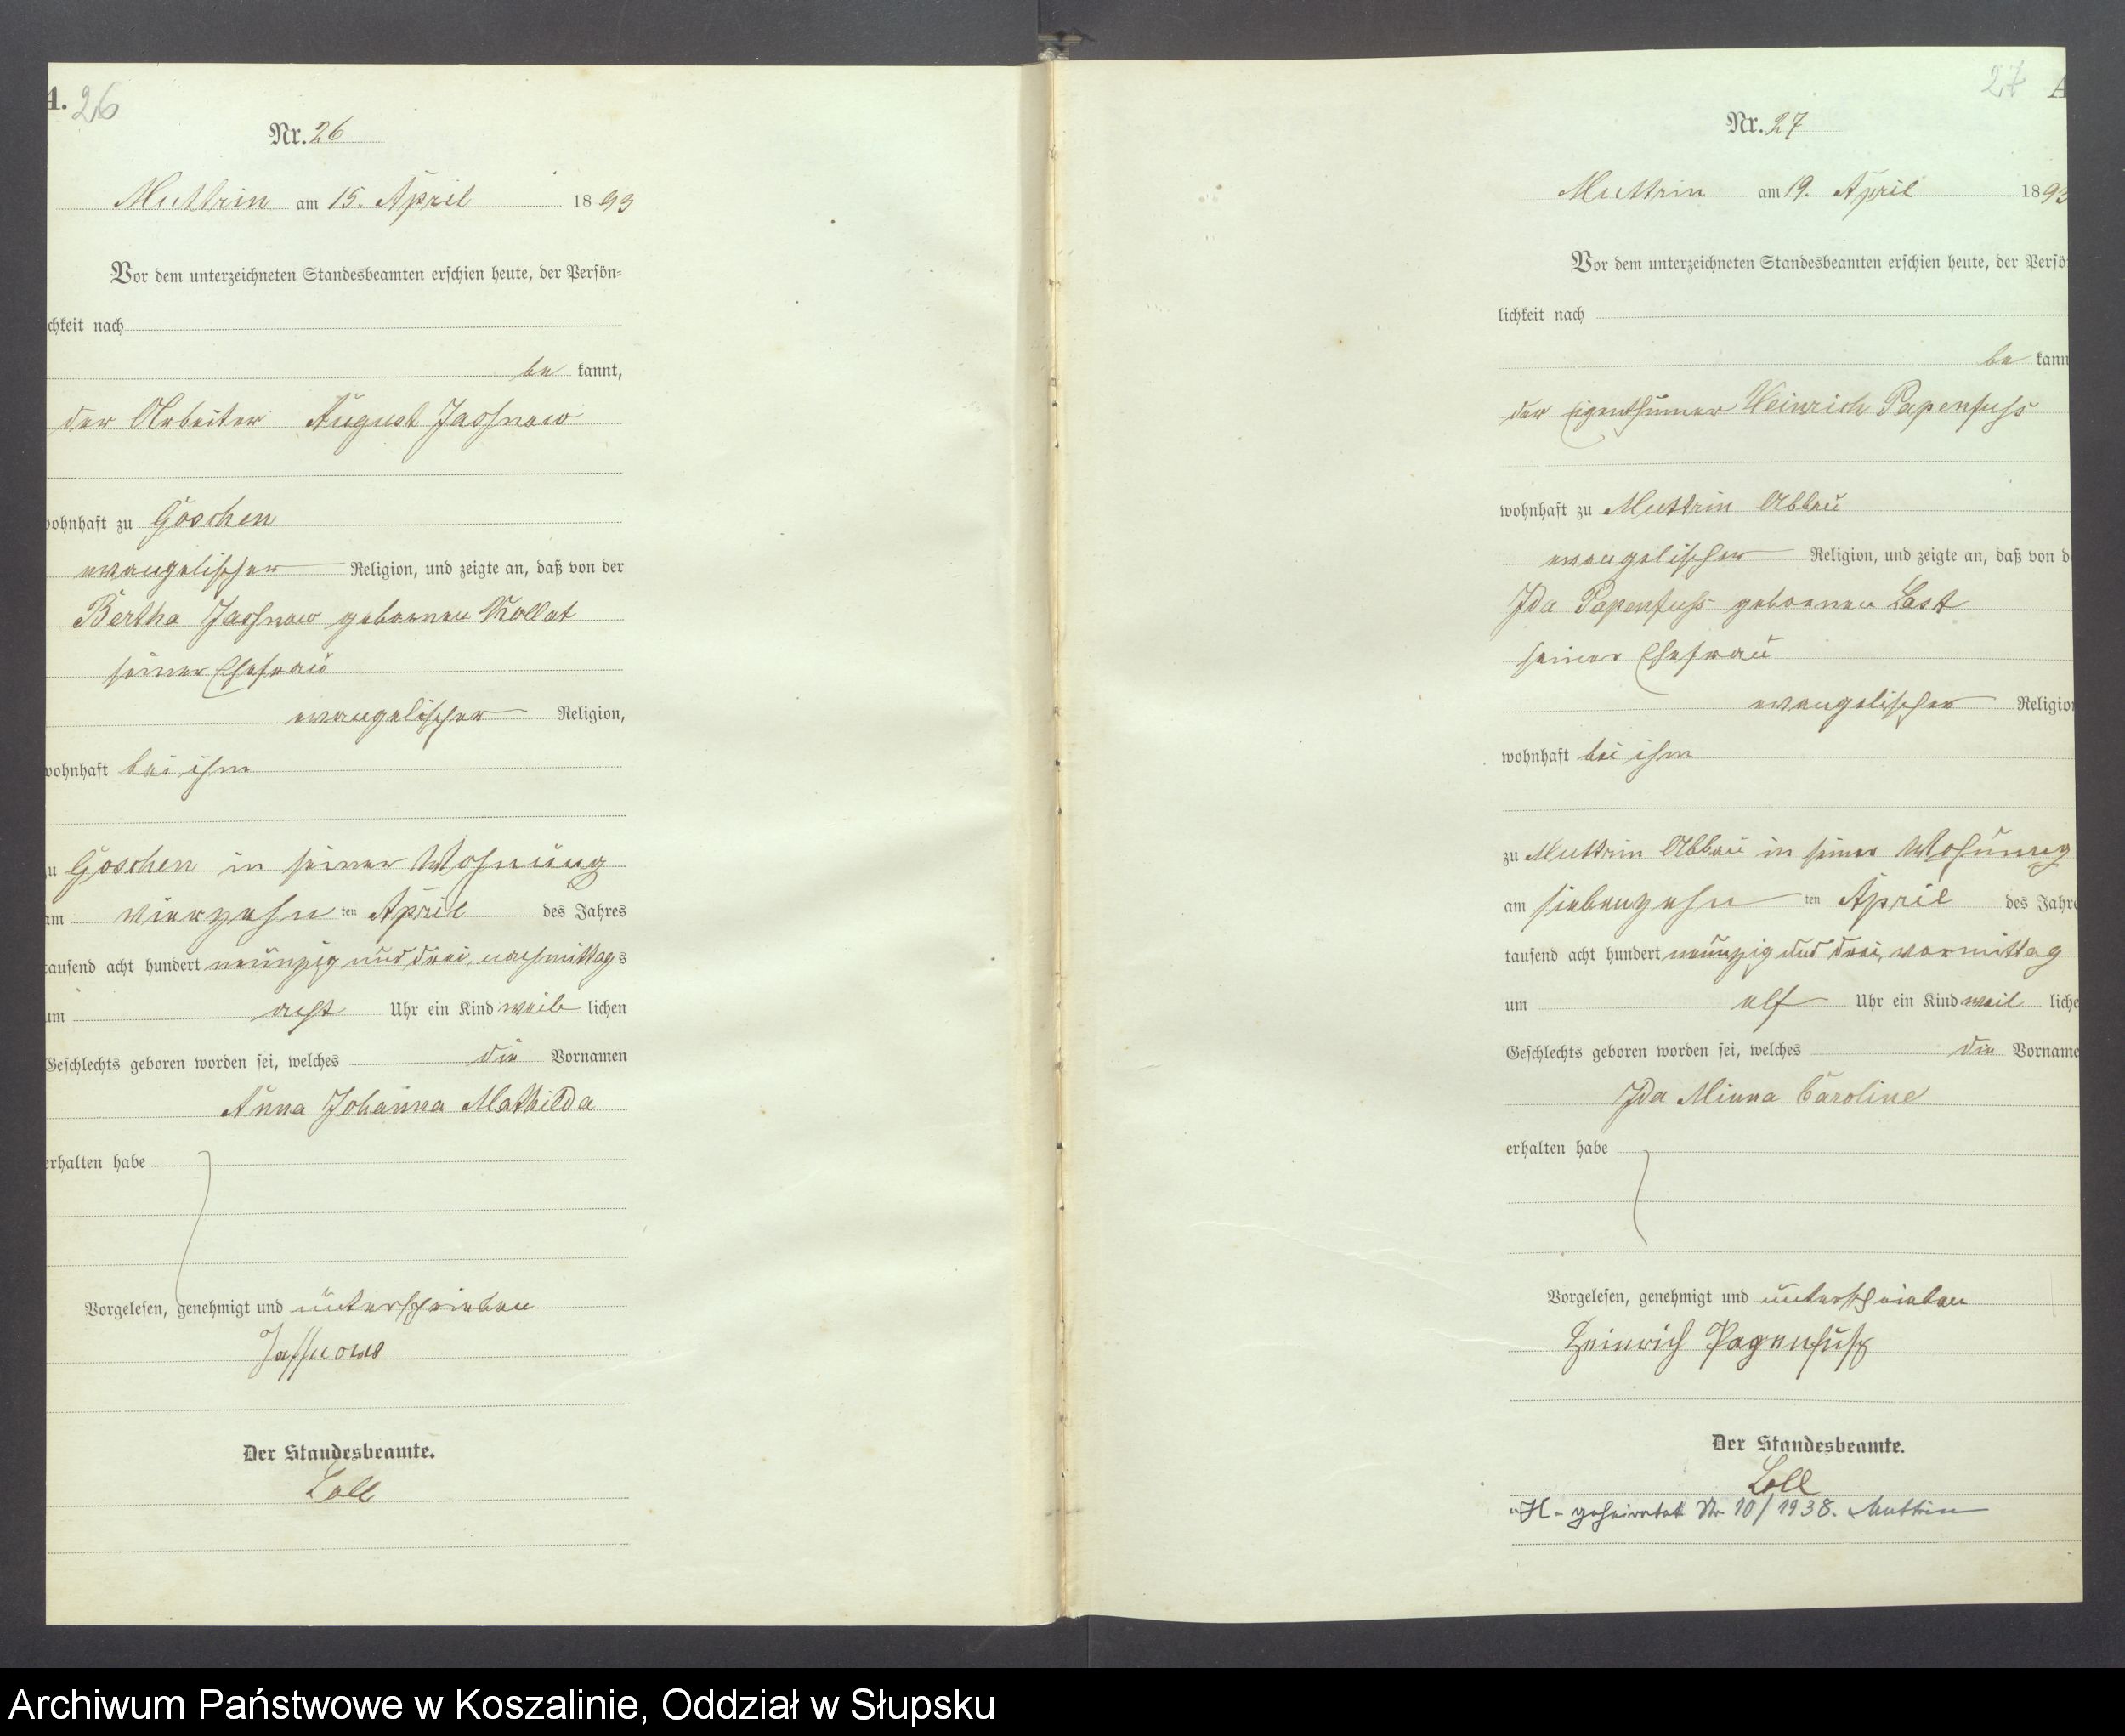 A. 26
Nr. 26
Muttrin am 15. April 1893
Vor dem unterzeichneten Standesbeamten erschien heute, der Persön=
chkeit nach
be kannt,
der Arbeiter August Jassnow
wohnhaft zu Goschen
evangelischer Religion, und zeigte an, daß von der
Bertha Jassnow geborenen Kollat
seiner Ehefrau
evangelischer Religion,
wohnhaft bei ihm
u Goschen in seiner Wohnung
am vierzehn ten April des Jahres
tausend acht hundert neunzig und drei, nachmittags
um acht Uhr ein Kind weib lichen
Geschlechts geboren worden sei, welches die Vornamen
Anna Johanna Mathilda
erhalten habe
Vorgelesen, genehmigt und unterschrieben
Jassnow
Der Standesbeamte.
Loll
27 A
Nr. 27
Muttrin am 19. April 1893
Vor dem unterzeichneten Standesbeamten erschien heute, der Persö
lichkeit nach
be kann
der Eigenthümer Heinrich Papenfuss
wohnhaft zu Muttrin Abbau
evangelischer Religion, und zeigte an, daß von de
Ida Papenfuss geborenen Last
seiner Ehefrau
evangelischer Religion
wohnhaft bei ihm
zu Muttrin Abbau in seiner Wohnung
am siebenzehn ten April des Jahre
tausend acht hundert neunzig und drei, vormittag
um elf Uhr ein Kind weib liche
Geschlechts geboren worden sei, welches die Vorname
Ida Minna Caroline
erhalten habe
Vorgelesen, genehmigt und unterschrieben
Heinrich Papenfuß
Der Standesbeamte.
Loll
"H" geheiratet Nr 10/1938. Muttrin
Archiwum Państwowe w Koszalinie, Oddział w Słupsku